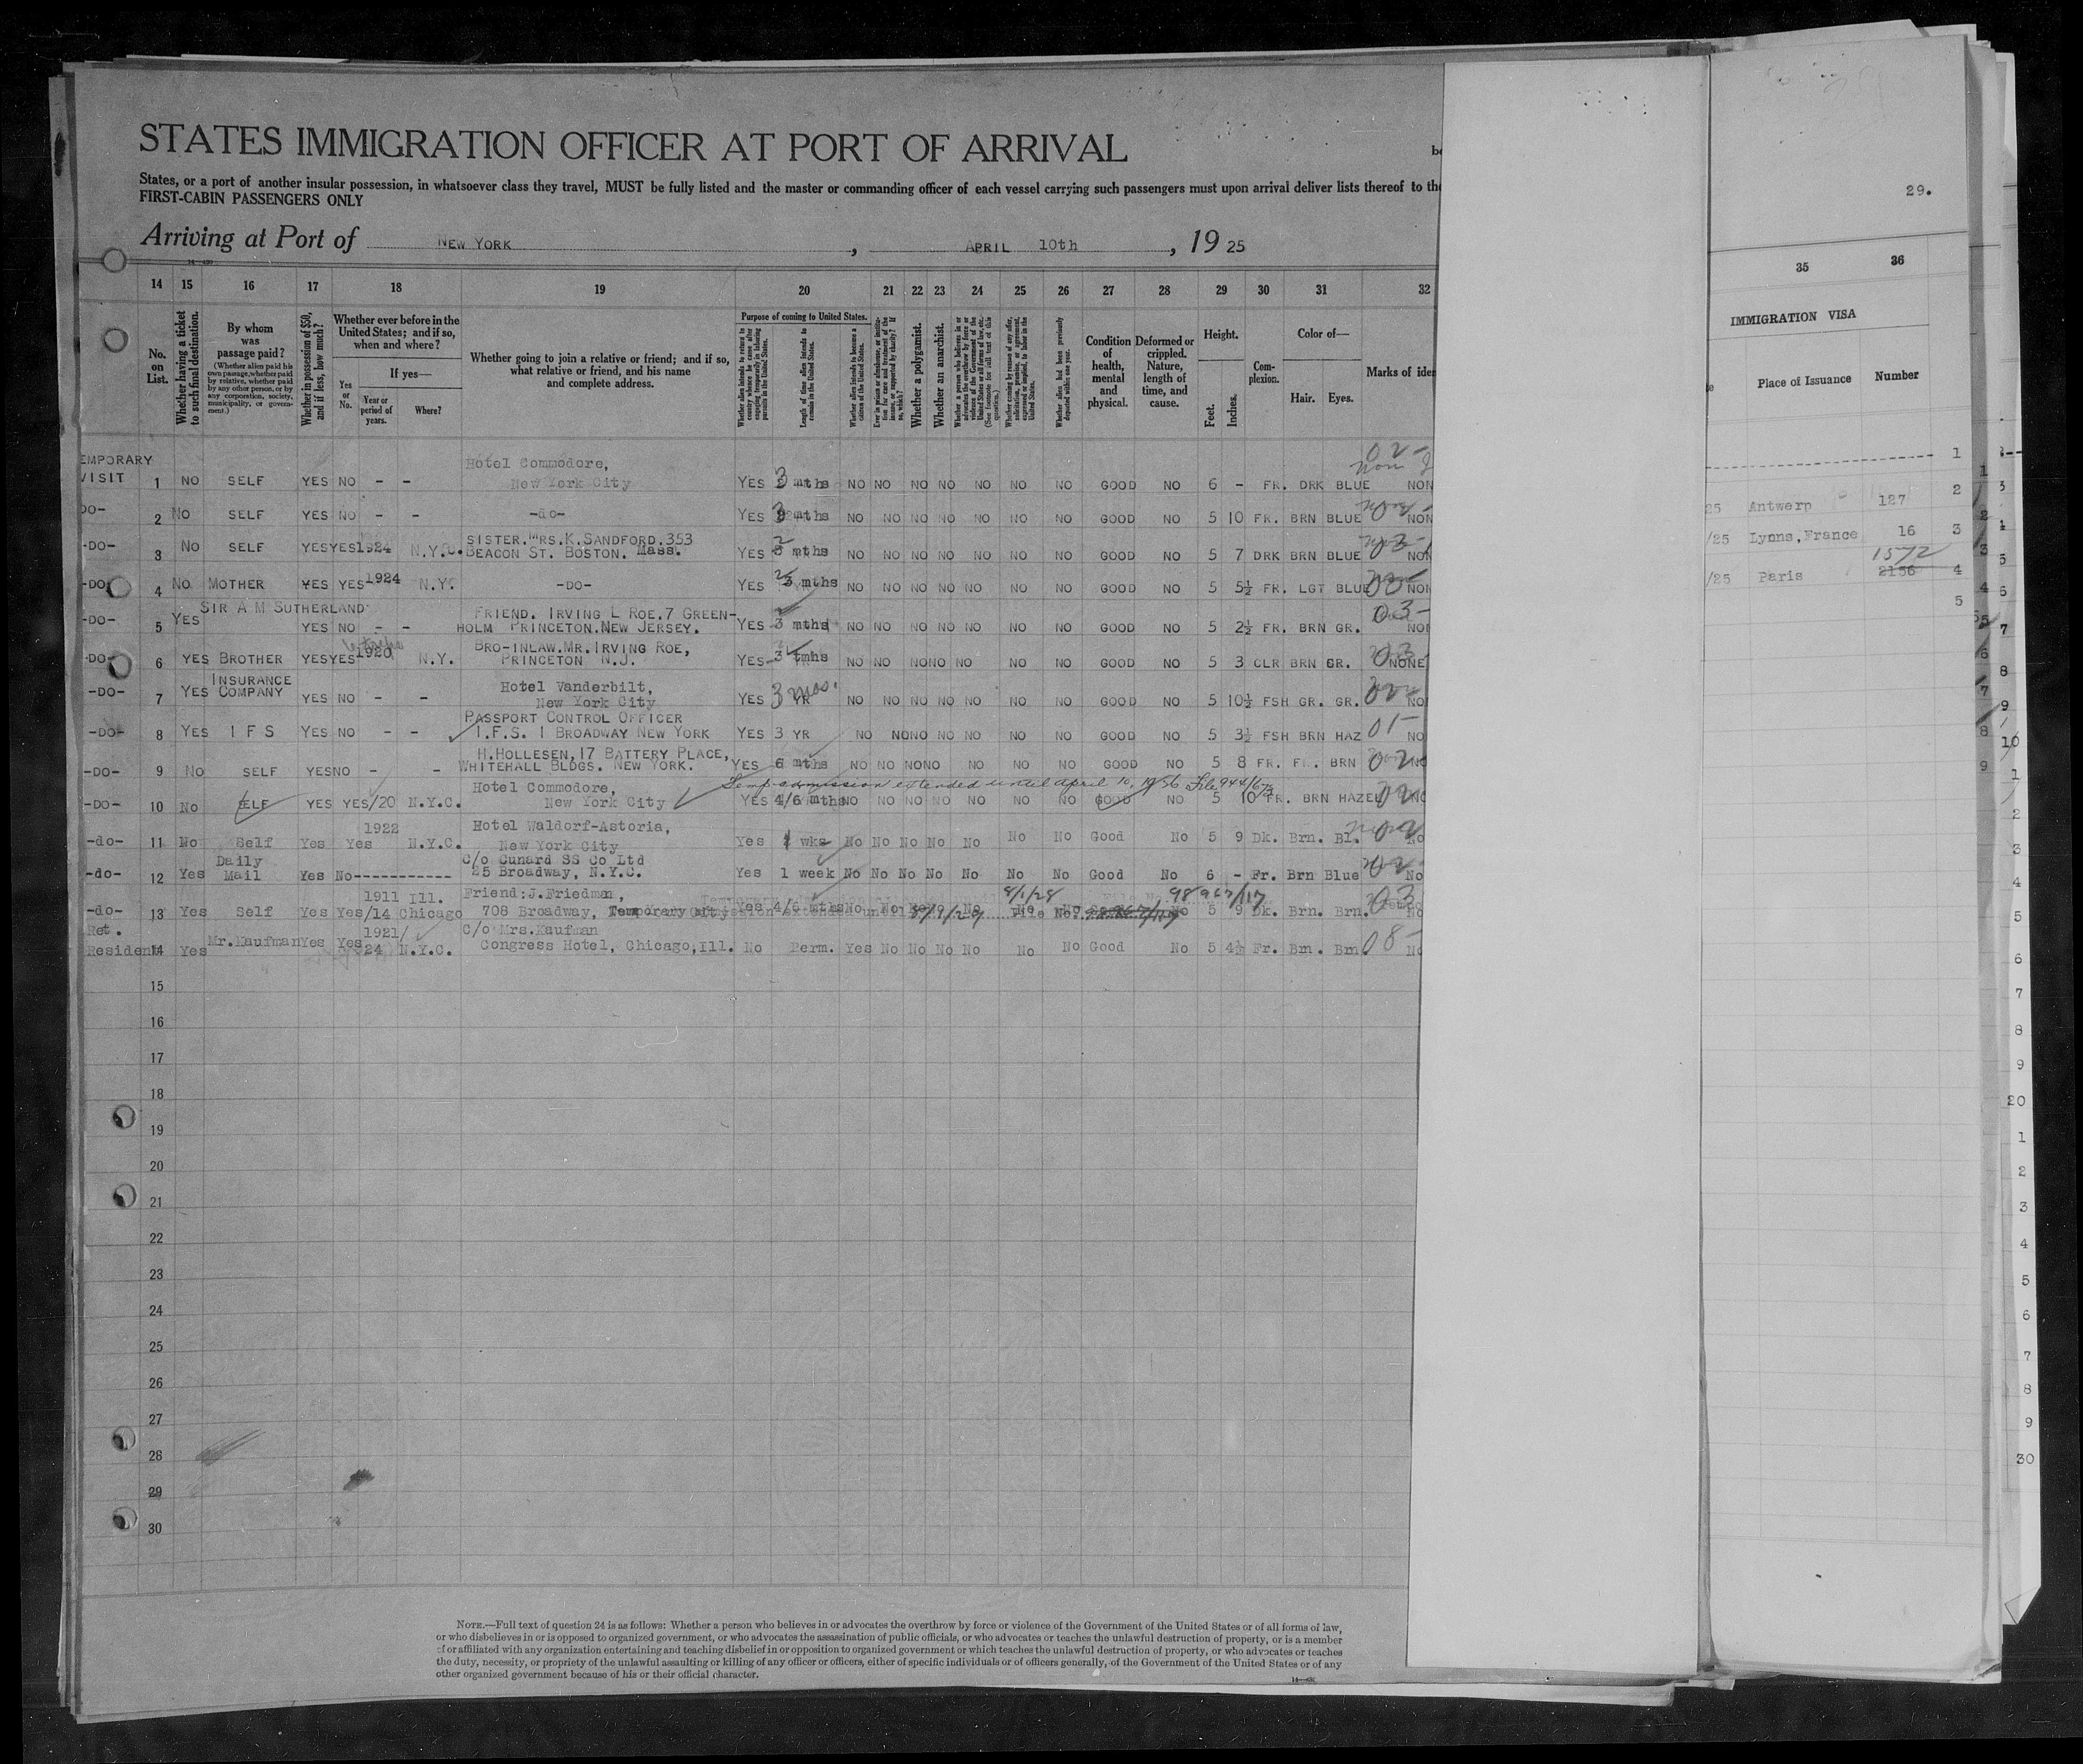 STATES IMMIGRATION OFFICER AT PORT OF ARRIVAL
States, or a port of another insular possession, in whatsoever class they travel, MUST be fully listed and the master or commanding officer of each vessel carrying such passengers must upon arrival deliver lists thereof to the
FIRST-CABIN PASSENGERS ONLY
29.
Arriving at Port of NEW YORK, APRIL 10th, 19 25
14 15 16 17 18 19 20 21 22 23 24 25 26 27 28 29 30 31 32
35 36
IMMIGRATION VISA
Place of Issuance Number
No. on List.
Whether having a ticket to such final destination.
By whom was passage paid?
(Whether alien paid his own passage, whether paid by relative, whether paid by any other person, or by any corporation, society, municipality, or government.)
Whether in possession of $50, and if less, how much?
Whether ever before in the United States; and if so, when and where?
Yes or No.
If yes—
Year or period of years.
Where?
Whether going to join a relative or friend; and if so, what relative or friend, and his name and complete address.
Purpose of coming to United States.
Whether alien intends to return to country whence he came after engaging temporarily in laboring pursuits in the United States.
Length of time alien intends to remain in the United States.
Whether alien intends to become a citizen of the United States.
Whether a polygamist.
Whether an anarchist.
Condition of health, mental and physical.
Deformed or crippled. Nature, length of time, and cause.
Height.
Feet. Inches.
Complexion.
Color of—
Hair. Eyes.
Marks of iden
EMPORARY
VISIT 1 NO SELF YES NO - - Hotel Commodore, New York City YES 3 mths NO NO NO NO NO NO NO GOOD NO 6 - FR. DRK BLUE NON
DO- 2 NO SELF YES NO - - -do- YES 3 mths NO NO NO NO NO NO NO GOOD NO 5 10 FR. BRN BLUE NON
-DO- 3 NO SELF YES YES 1924 N.Y. SISTER.MRS.K.SANDFORD.353 BEACON ST. BOSTON. Mass. YES mths NO NO NO NO NO NO NO GOOD NO 5 7 DRK BRN BLUE NON
-DO 4 NO MOTHER YES YES 1924 N.Y. -DO- YES 3 mths NO NO NO NO NO NO NO GOOD NO 5 5½ FR. LGT BLUE NON
-DO- 5 YES SIR A M SUTHERLAND YES NO - - FRIEND. IRVING L ROE.7 GREEN- HOLM PRINCETON.NEW JERSEY. YES 3 mths NO NO NO NO NO NO NO GOOD NO 5 2½ FR. BRN GR. 03- NON
-DO- 6 YES BROTHER YES YES 1920 N.Y. BRO-INLAW.MR.IRVING ROE, PRINCETON N.J. YES- 3 tmhs NO NO NO NO NO NO NO GOOD NO 5 3 CLR BRN GR. NONE
-DO- 7 YES INSURANCE COMPANY YES NO - - Hotel Vanderbilt, New York City YES 3 mos. YR NO NO NO NO NO NO NO GOOD NO 5 10½ FSH GR. GR. NO
-DO- 8 YES I F S YES NO - - PASSPORT CONTROL OFFICER I.F.S. 1 BROADWAY NEW YORK YES 3 YR NO NO NO NO NO NO NO GOOD NO 5 3½ FSH BRN HAZ 01- NO
-DO- 9 NO SELF YES NO - - H.HOLLESEN,17 BATTERY PLACE, WHITEHALL BLDGS. NEW YORK. YES 6 mths NO NO NO NO NO NO NO GOOD NO 5 8 FR. FR. BRN 02
Temp admission extended until April 10, 1926 File 944/673
-DO- 10 NO SELF YES YES/20 N.Y.C. Hotel Commodore, New York City YES 4/6 mths NO NO NO NO NO NO NO GOOD NO 5 10 FR. BRN HAZEL
-do- 11 No Self Yes Yes 1922 N.Y.C. Hotel Waldorf-Astoria, New York City Yes wks No No No No No No No Good No 5 9 Dk. Brn. Bl. No
-do- 12 Yes Daily Mail Yes No----------- C/o Cunard SS Co Ltd 25 Broadway, N.Y.C. Yes 1 week No No No No No No No Good No 6 - Fr. Brn Blue No
-do- 13 Yes Self Yes Yes 1911/14 Ill. Chicago Friend:J.Friedman, 708 Broadway, Yes 4/6 mths No No No No No No No No 5 9 Dk. Brn. Brn. 03 No
8/1/28 98967/117
Ret.
Resident 14 Yes Mr.Kaufman Yes Yes 1921/24 N.Y.C. C/o Mrs.Kaufman Congress Hotel, Chicago,Ill. No Perm. Yes No No No No No No Good No 5 4½ Fr. Brn. Brn. 08- No
15
16
17
18
19
20
21
22
23
24
25
26
27
28
29
30
1
25 Antwerp 127 2
/25 Lyons,France 16 3
1572
/25 Paris 2156 4
5
NOTE.—Full text of question 24 is as follows: Whether a person who believes in or advocates the overthrow by force or violence of the Government of the United States or of all forms of law,
or who disbelieves in or is opposed to organized government, or who advocates the assassination of public officials, or who advocates or teaches the unlawful destruction of property, or is a member
of or affiliated with any organization entertaining and teaching disbelief in or opposition to organized government or which teaches the unlawful destruction of property, or who advocates or teaches
the duty, necessity, or propriety of the unlawful assaulting or killing of any officer or officers, either of specific individuals or of officers generally, of the Government of the United States or of any
other organized government because of his or their official character.